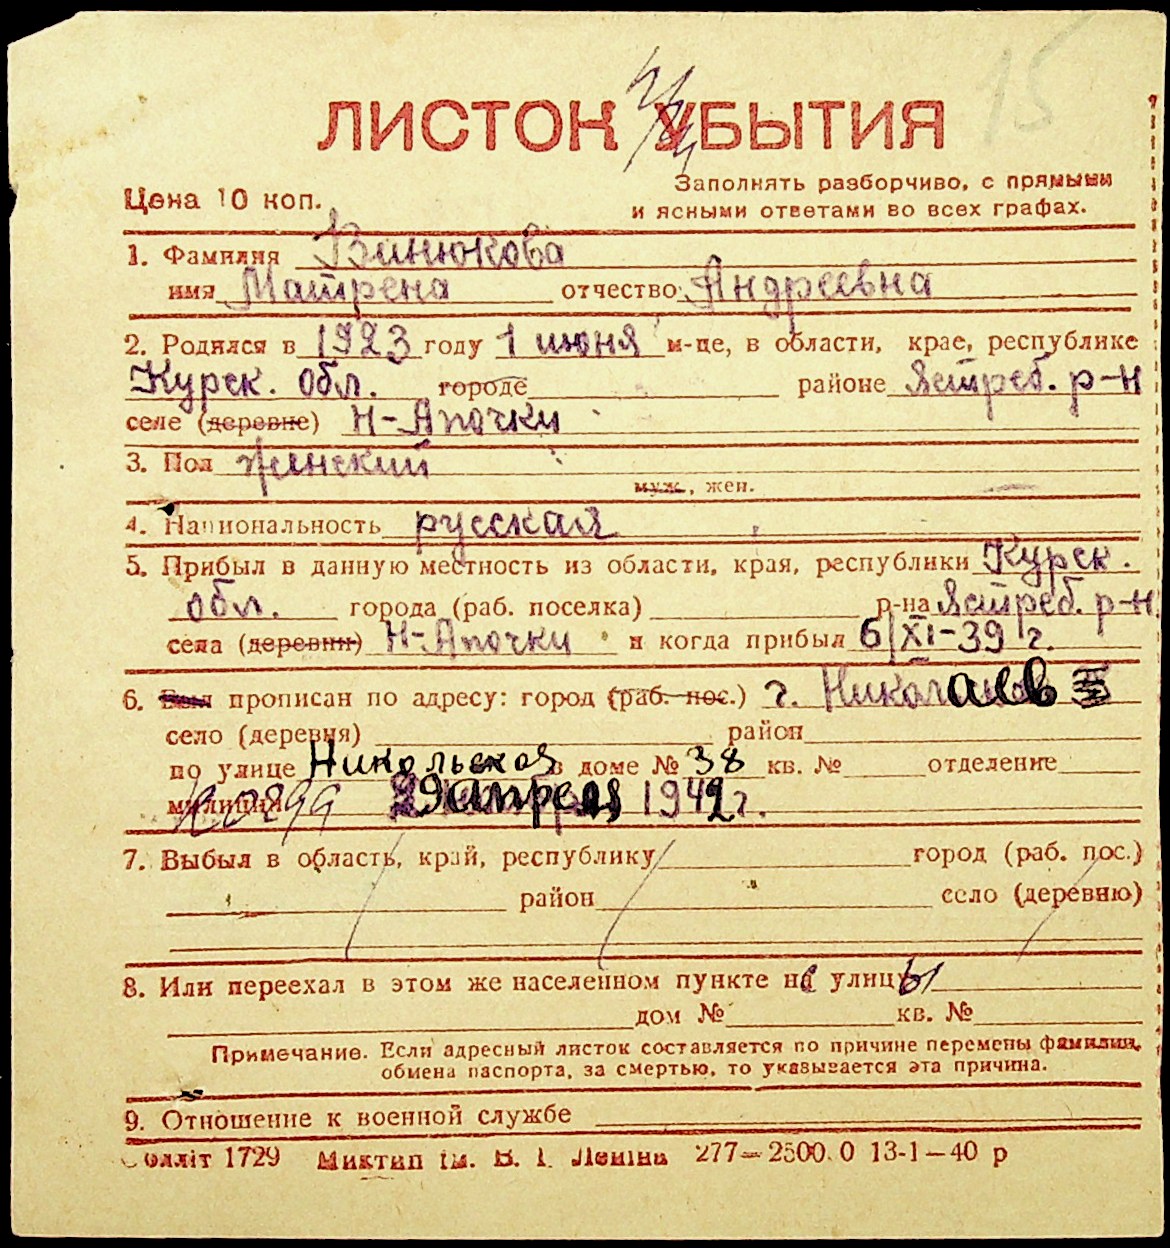 15
ЛИСТОК УБЫТИЯ
Цена 10 коп.
Заполнять разборчиво, с прямыми
и ясными ответами во всех графах.
1. Фамилия Винюкова
имя Матрена отчество Андреевна
2. Родился в 1923 году 1 июня м-це, в области, крае, республике
Курск. обл. городе районе Ястреб. р-н
селе (деревне) Н-Апочки
3. Пол женский
муж., жен.
4. Национальность русская
5. Прибыл в данную местность из области, края, республики Курск.
обл. города (раб. поселка) р-на Ястреб. р-н
села (деревни) Н-Апочки и когда прибыл 6/XI-39 г.
6. Был прописан по адресу: город (раб. пос.) г. Николаев
село (деревня) район
по улице Никольская в доме № 38 кв. № отделение
милиции 29 апреля 1942 г.
7. Выбыл в область, край, республику город (раб. пос.)
район село (деревню)
8. Или переехал в этом же населенном пункте не улицы
дом № кв. №
Примечание. Если адресный листок составляется по причине перемены фамилии,
обмена паспорта, за смертью, то указывается эта причина.
9. Отношение к военной службе
Облліт 1729 Миктип ім. В. І. Леніна 277—2500. 0 13-1—40 р